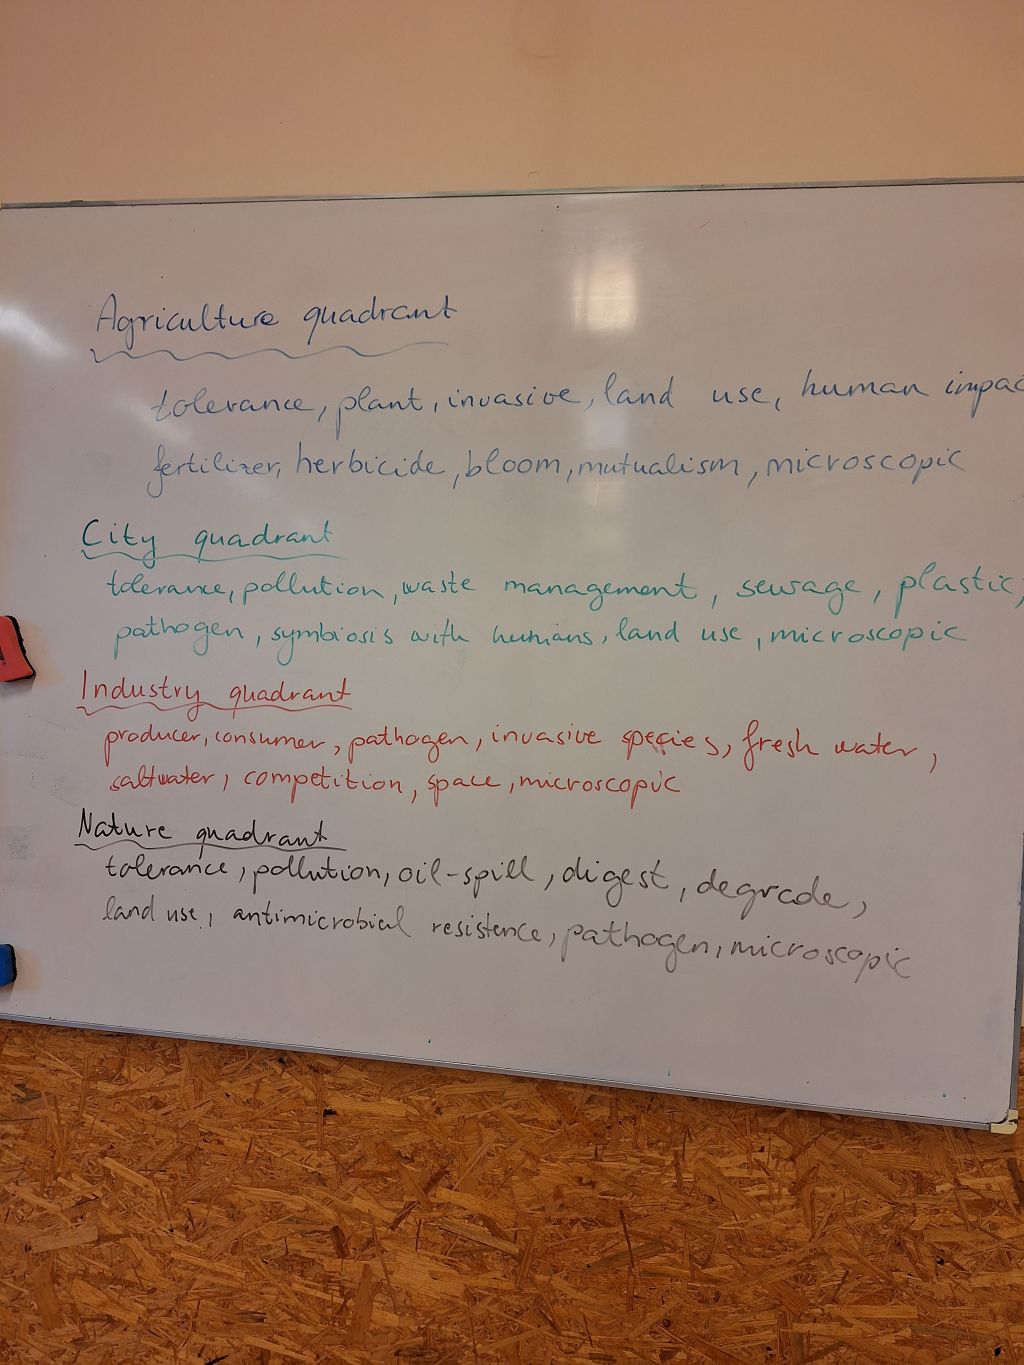 Agriculture quadrant
tolerance, plant, invasive, land use, human impac
fertilizer, herbicide, bloom, mutualism, microscopic
City quadrant
tolerance, pollution, waste management, sewage, plastic,
pathogen, symbiosis with humans, land use, microscopic
Industry quadrant
producer, consumer, pathogen, invasive species, fresh water,
saltwater, competition, space, microscopic
Nature quadrant
tolerance, pollution, oil-spill, digest, degrade,
land use, antimicrobial resistence, pathogen, microscopic